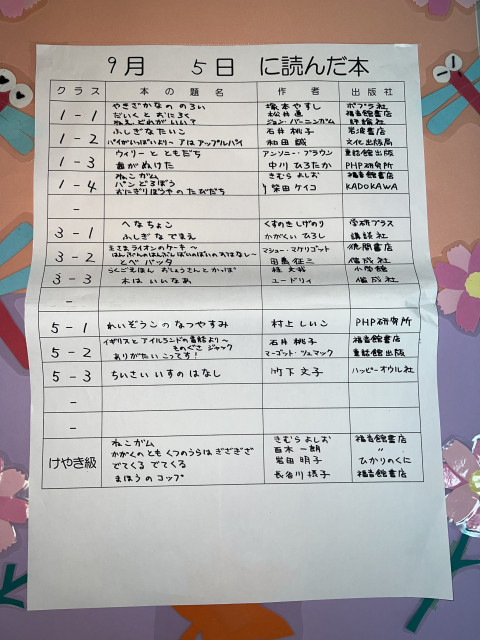 9月 5日 に読んだ本
クラス 本の題名 作者 出版社
1-1 やきざかなの のろい 塚本やすし ポプラ社
だいくと おにろく 松居直 福音館書店
ねえ、どれが いい? ジョン・バーニンガム 評論社
1-2 ふしぎなたいこ 石井桃子 岩波書店
パイがいっぱい〜 Aは アップルパイ 和田誠 文化出版局
1-3 ウィリーと ともだち アンソニー・ブラウン 童話館出版
歯がぬけた 中川ひろたか PHP研究所
1-4 ねこガム きむらよしお 福音館書店
パンどろぼう おにぎりぼうやの たびだち 柴田ケイコ KADOKAWA
-
3-1 へなちょこ くすのきしげのり 学研プラス
ふしぎ なでまえ かがくい ひろし 講談社
3-2 王さまライオンのケーキ〜 マシュー・マケリゴット 徳間書店
はんぶんのはんぶん ばいのばいの おはなし〜
とべ バッタ 田島征三 偕成社
3-3 らくごえほん おしょうさんと かっぱ 桂文我 小学館
木は いいなあ ユードリィ 偕成社
-
5-1 れいぞうこの なつやすみ 村上しいこ PHP研究所
5-2 イギリスと アイルランドの昔話より〜 石井桃子 福音館書店
ものぐさ ジャック
ありがたい こってす! マーゴット・ツェマック 童話館出版
5-3 ちいさい いすの はなし 竹下文子 ハッピーオウル社
-
-
けやき級 ねこガム きむらよしお 福音館書店
かがくのとも くつのうらは ぎざぎざ 百木一朗 〃
でてくる でてくる 岩田明子 ひかりのくに
まほうの コップ 長谷川摂子 福音館書店